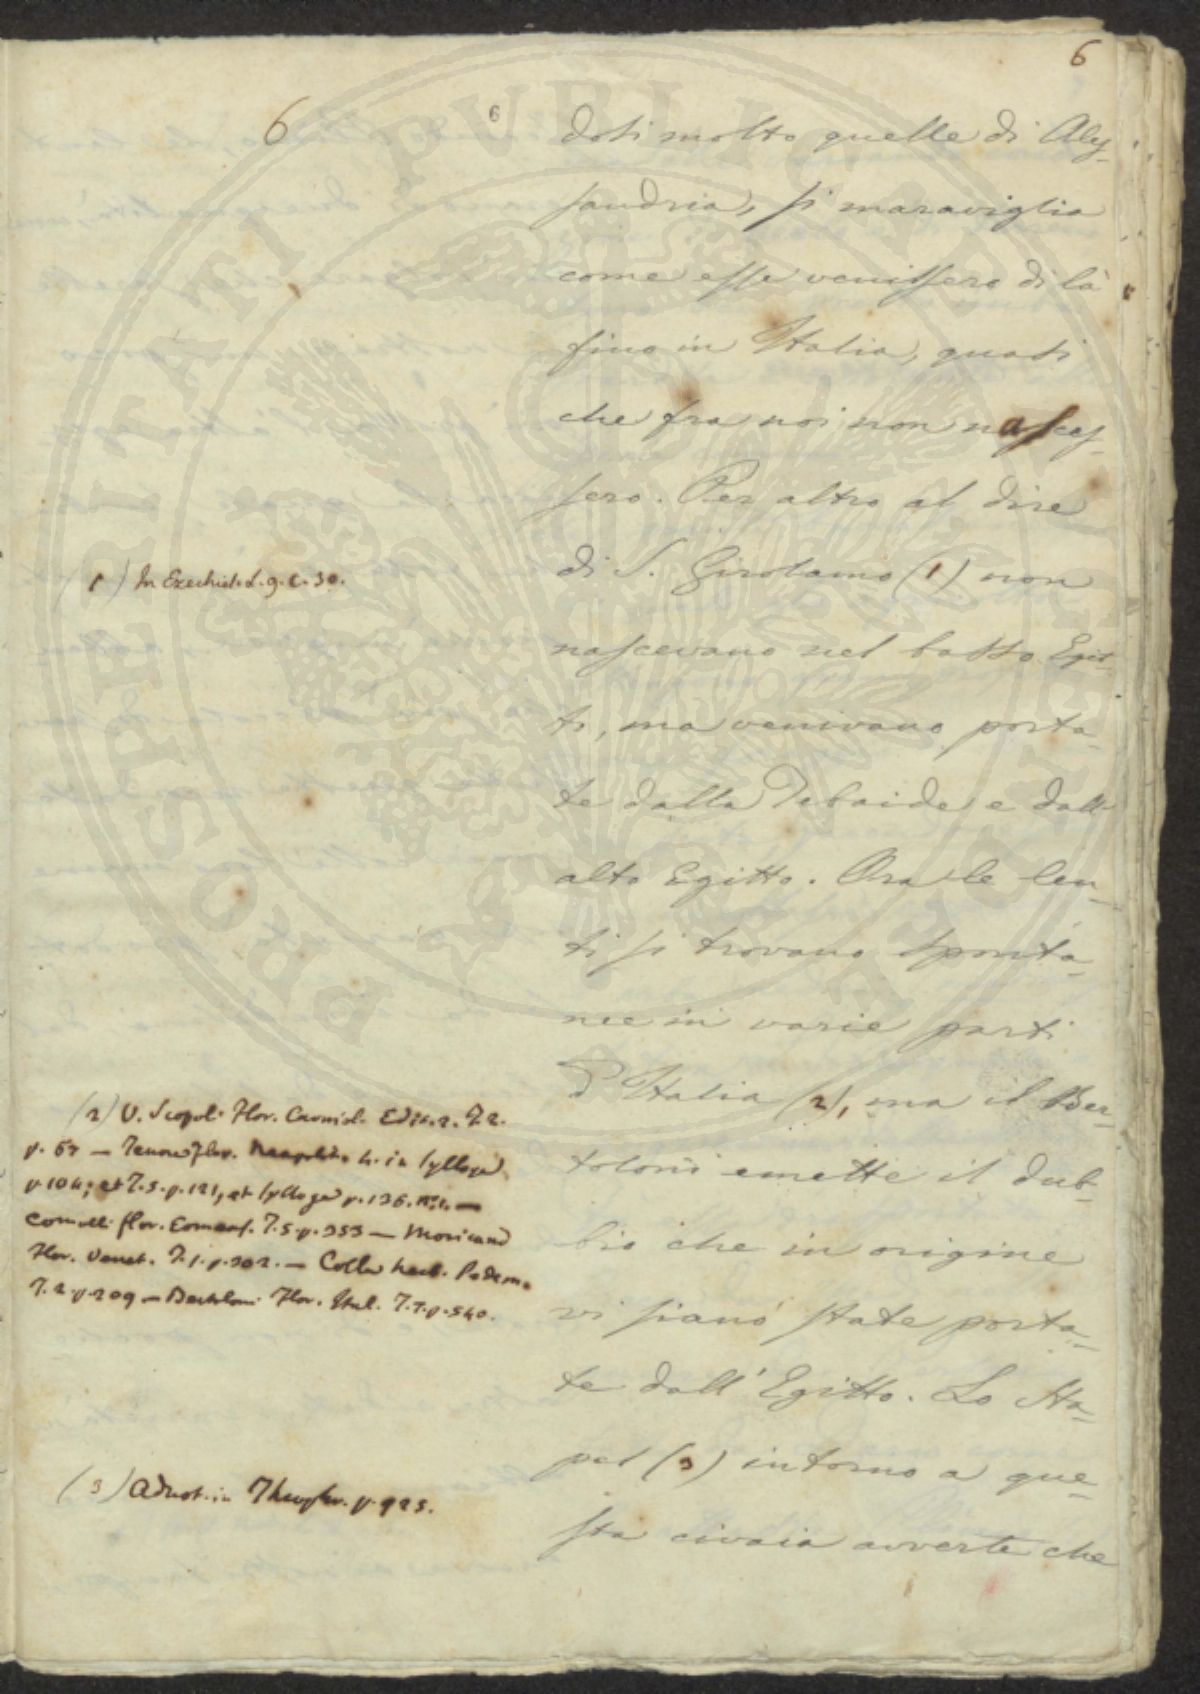 6
6
6
dosi molto quelle di Ales-
sandria, si maraviglia
come esse venissero di là
fino in Italia, quasi
che fra noi non nasces-
sero. Per altro al dire
di S. Girolamo (1) non
nascevano nel basso Egit-
to, ma venivano porta-
te dalla Tebaide e dall'
alto Egitto. Ora le len-
ti si trovano sponta-
nee in varie parti
d'Italia (2), ma il Ber-
toloni emette il dub-
bio che in origine
vi siano state porta-
te dall'Egitto. Lo Sta-
pel (3) intorno a que-
sta civaia avverte che
(1) In Ezechiel. L. 9. c. 30.
(2) V. Scopoli Flor. Carniol. Edit. 2. T. 2.
p. 67 — Tenore flor. Neapolit. in sylloge
p. 104; et T. 5. p. 121, et sylloge p. 136. — 
Comolli flor. Comens. T. 5. p. 353 — Moricand
Flor. Venet. T. 1. p. 302. — Colla herb. Pedem.
T. 2. p. 209 — Bertoloni Flor. Ital. T. 7. p. 540.
(3) Adnot. in Theophr. p. 925.
PROSPERITATI PVBLICAE